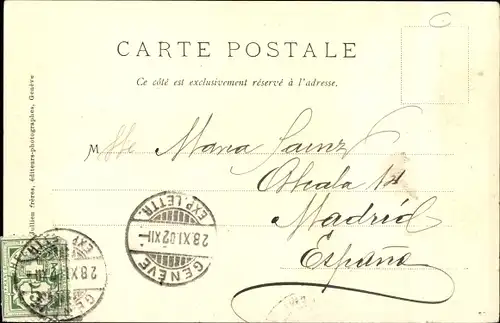 CARTE POSTALE
Ce côté est exclusivement réservé à l'adresse.
Jullien frères, éditeurs-photographes, Genève
Mlle Maria Sainz
Alcala 12
Madrid
España
GENÈVE
28.XI.02.XII-
EXP. LETTR.
28.XI.02
EXP. LETTR.